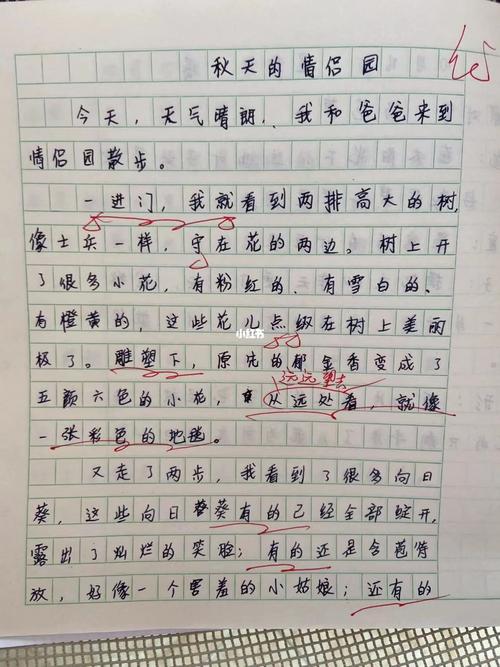 秋天的情侣园
今天，天气晴朗，我和爸爸来到
情侣园散步。
一进门，我就看到两排高大的树，
像士兵一样，守在花的两边。树上开
了很多小花，有粉红的、有雪白的、
有橙黄的，这些花儿点缀在树上美丽
小红书
极了。雕塑下，原先的郁金香变成了
远远望去
五颜六色的小花，从远处看，就像
一张彩色的地毯。
又走了两步，我看到了很多向日
葵，这些向日葵有的已经全部绽开，
露出了灿烂的笑脸；有的还是含苞待
放，好像一个害羞的小姑娘；还有的